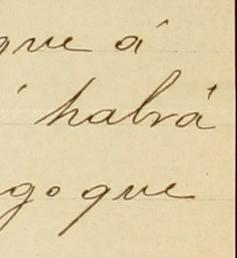 que á
habrá
go que